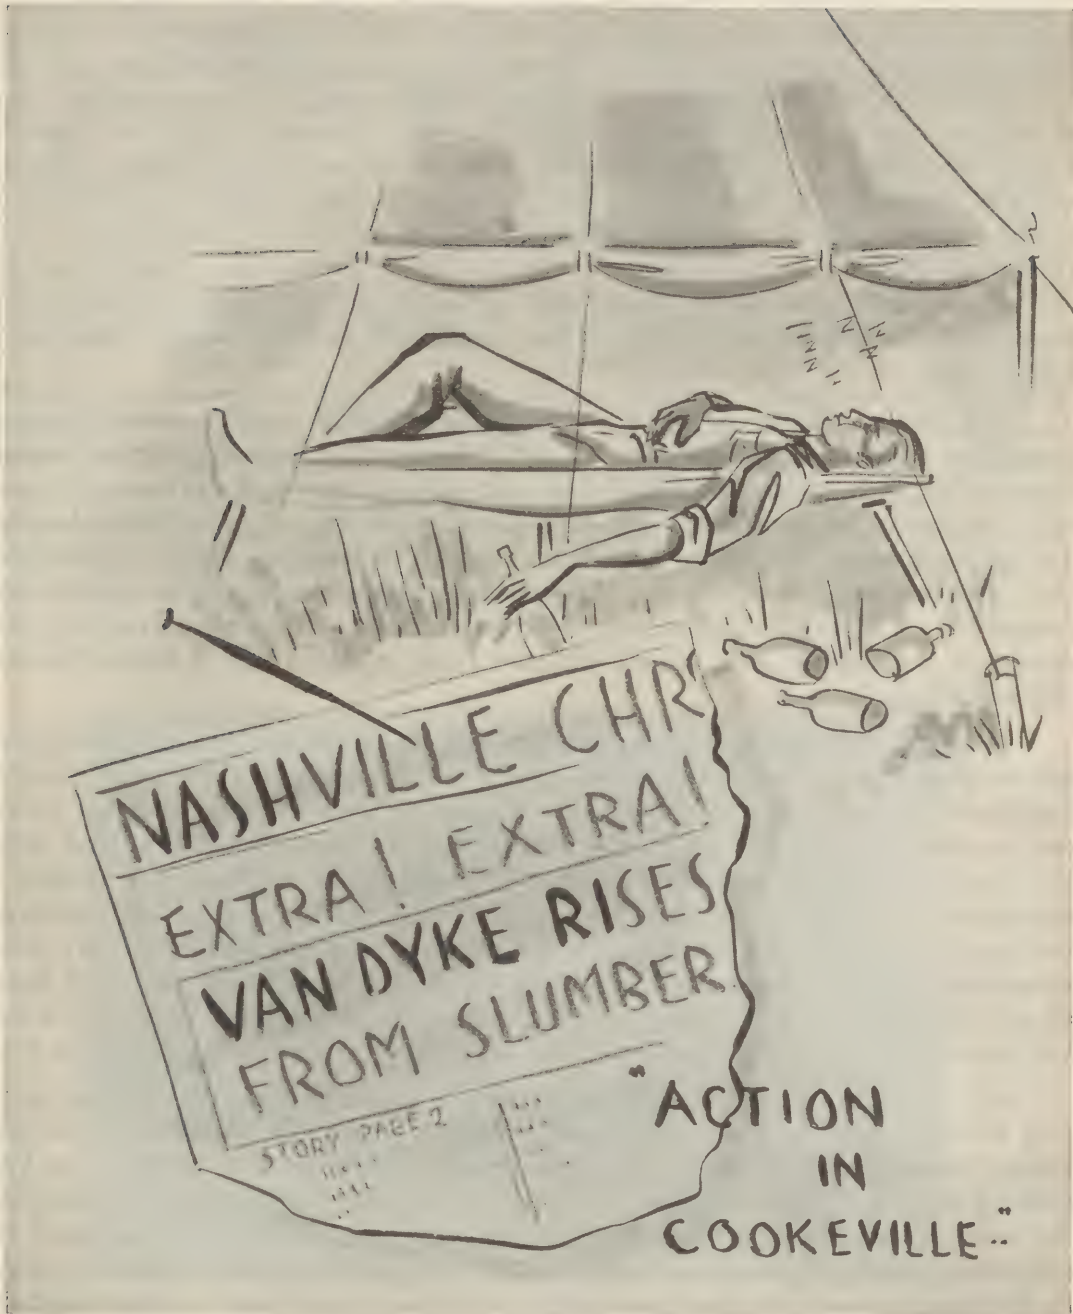 Z Z
Z Z
Z
Z
NASHVILLE CHR
EXTRA! EXTRA!
VAN DYKE RISES
FROM SLUMBER
STORY PAGE 2
"ACTION
IN
COOKEVILLE.."